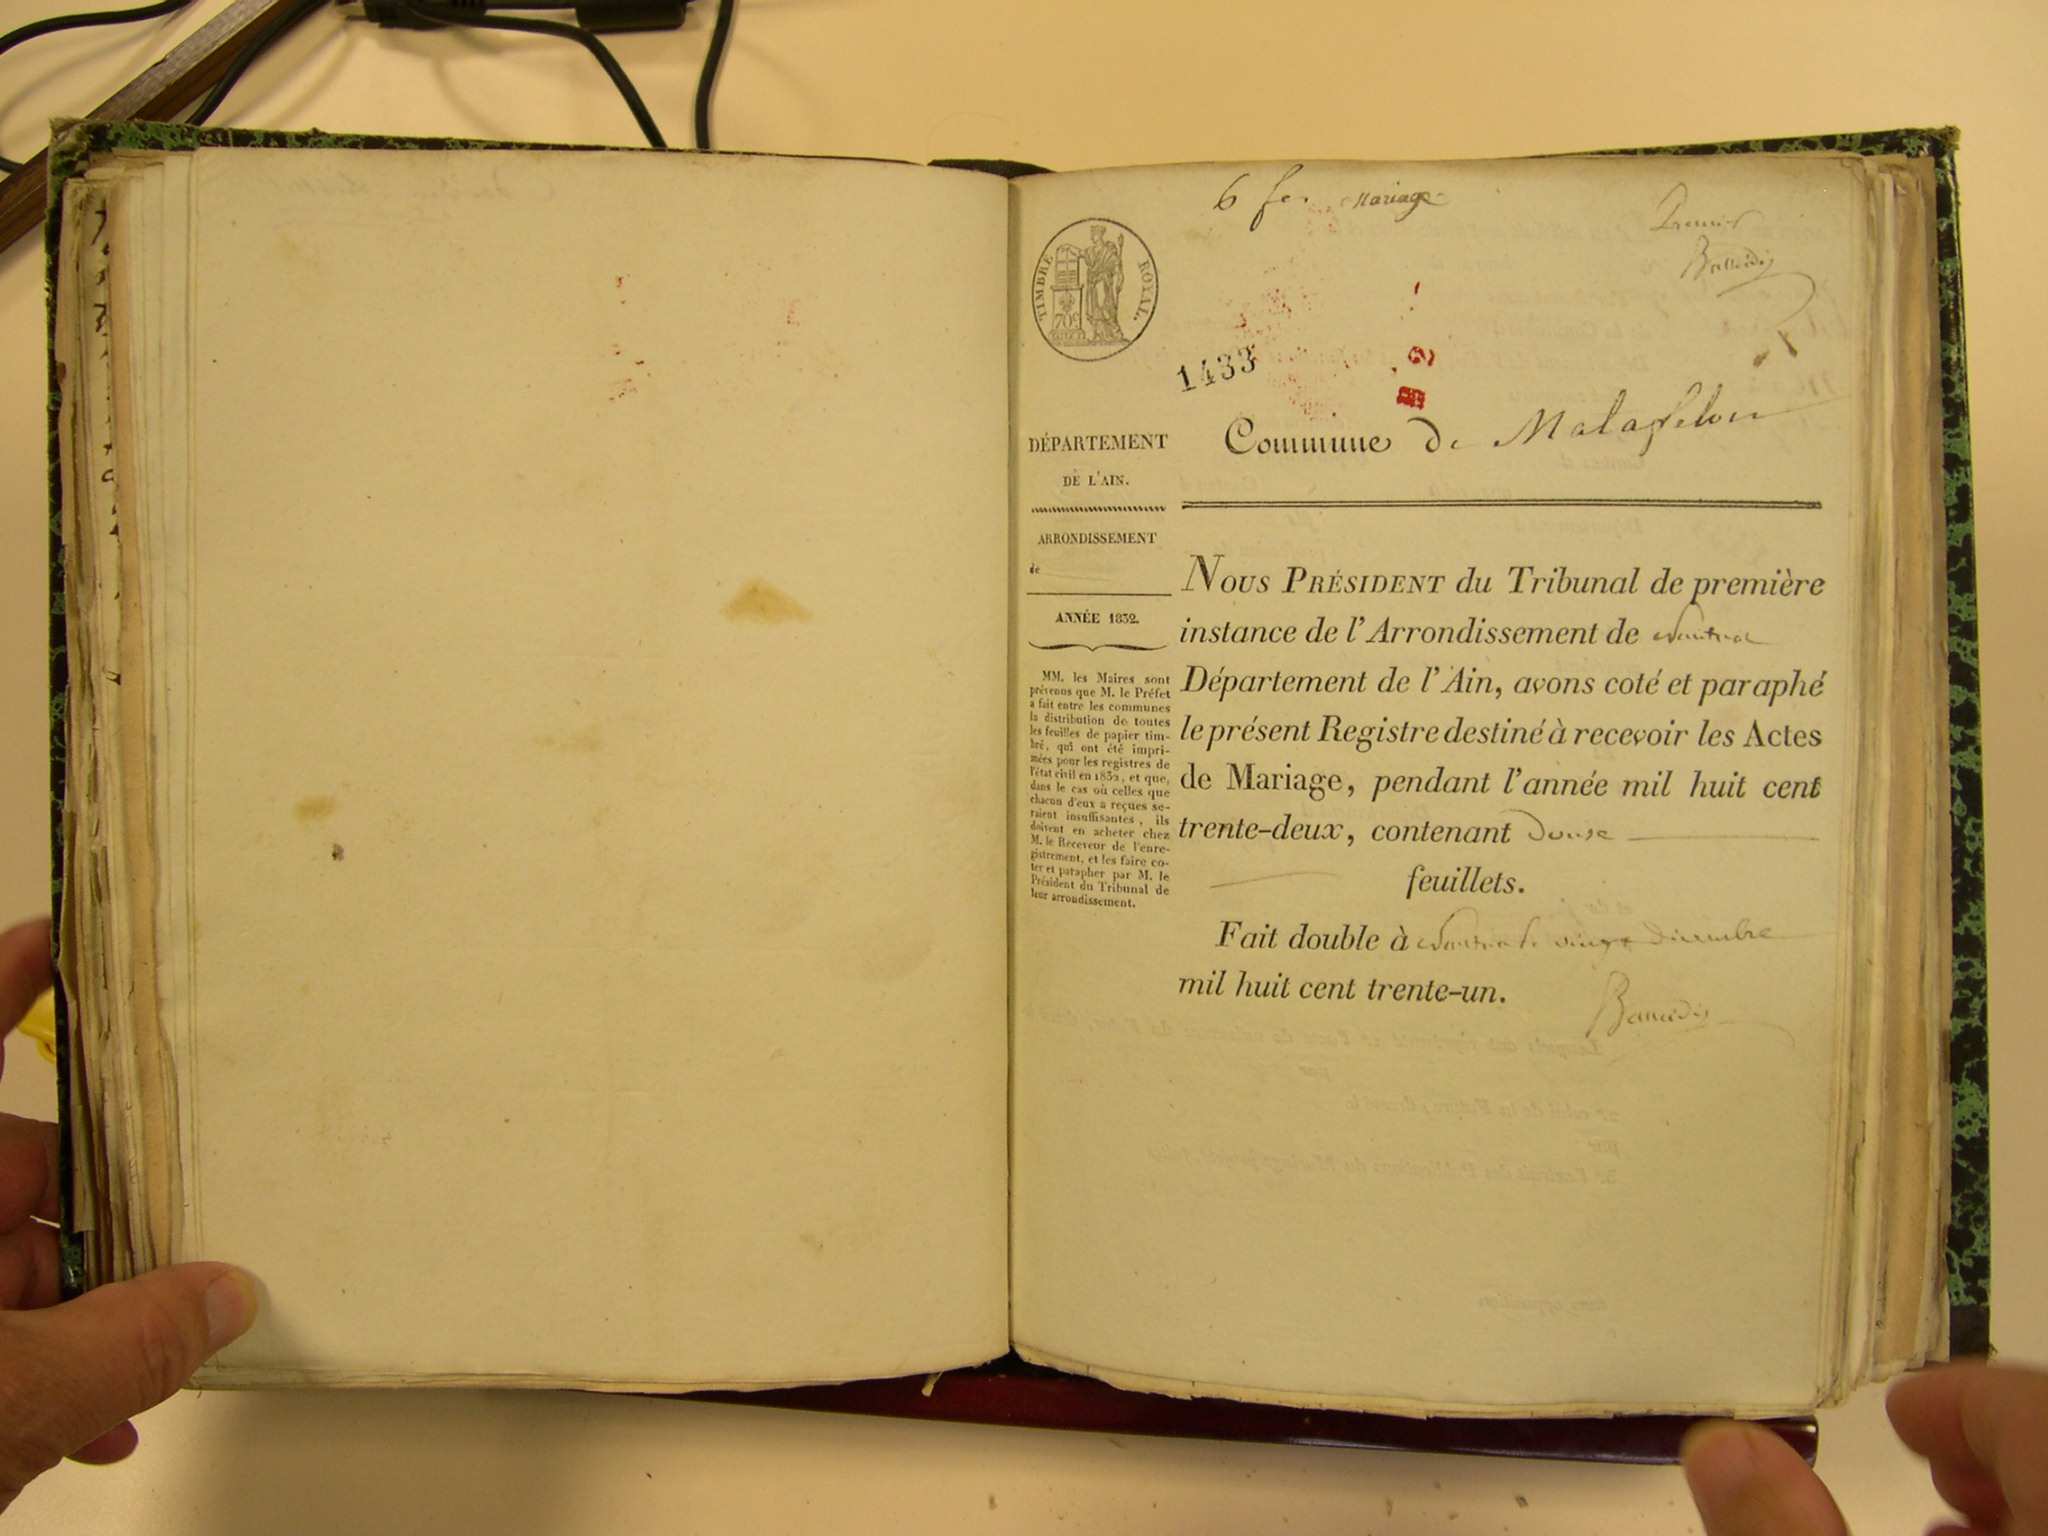 6 f. Mariage
Premier
TIMBRE ROYAL.
70c
1433
DÉPARTEMENT
DE L'AIN.
ARRONDISSEMENT
de
ANNÉE 1832.
MM. les Maires sont
prévenus que M. le Préfet
a fait entre les communes
la distribution de toutes
les feuilles de papier tim-
bré, qui ont été impri-
mées pour les registres de
l'état civil en 1832, et que,
dans le cas où celles que
chacun d'eux a reçues se-
raient insuffisantes, ils
doivent en acheter chez
M. le Receveur de l'enre-
gistrement, et les faire co-
ter et parapher par M. le
Président du Tribunal de
leur arrondissement.
Commune de Matafelon
NOUS PRÉSIDENT du Tribunal de première
instance de l'Arrondissement de Nantua
Département de l'Ain, avons coté et paraphé
le présent Registre destiné à recevoir les Actes
de Mariage, pendant l'année mil huit cent
trente-deux, contenant Douse
feuillets.
Fait double à Nantua le vingt Décembre
mil huit cent trente-un.